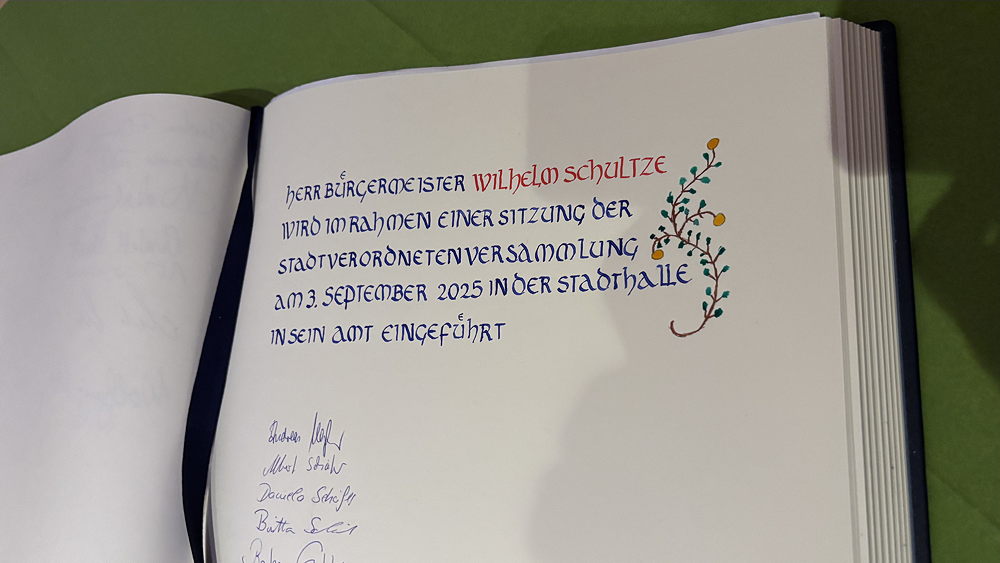 HERR BÜRGERMEISTER WILHELM SCHULTZE
WIRD IM RAHMEN EINER SITZUNG DER
STADTVERORDNETENVERSAMMLUNG
AM 3. SEPTEMBER 2025 IN DER STADTHALLE
IN SEIN AMT EINGEFÜHRT
Andreas
Albert
Daniela
Britta